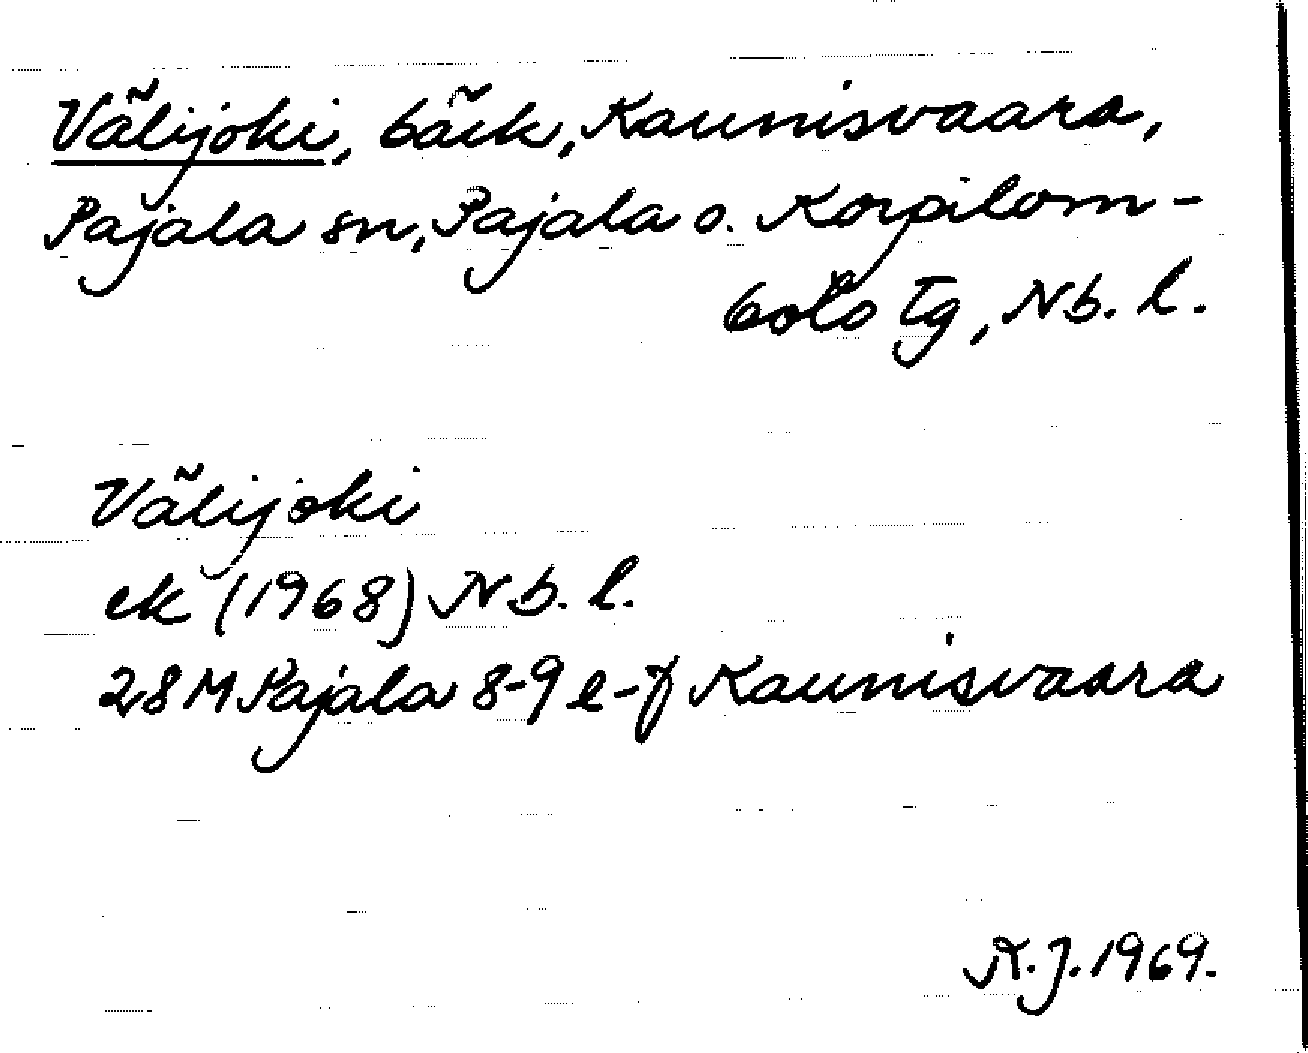 Välijoki, bäck, Kaunisvaara,
Pajala sn, Pajala o. Korpilom-
bolo tg, Nb. l.
Välijoki
ek (1968) Nb. l.
28 M Pajala 8-9 e-f Kaunisvaara
K.J. 1969.